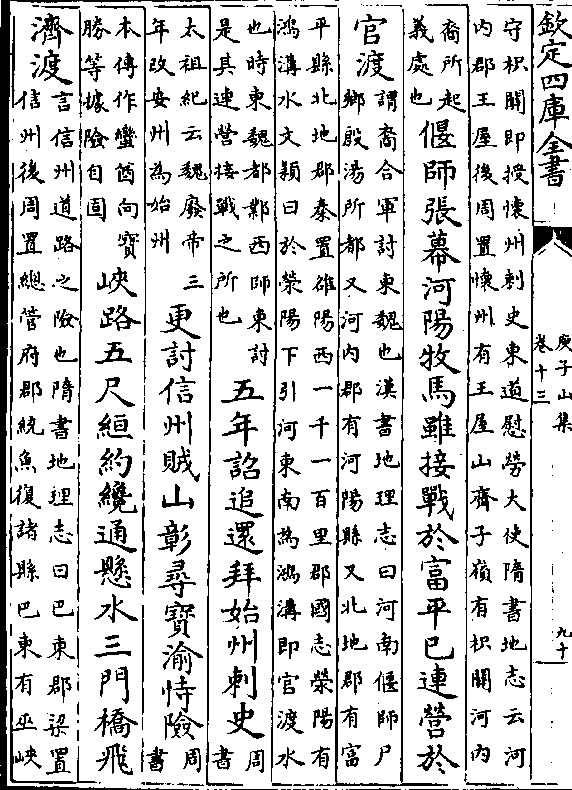 欽定四庫全書
庾子山集
卷十三
九十
守枳關即授懷州刺史東道慰勞大使隋書地志云河
内郡王屋後周置懷州有王屋山齊子嶺有枳關河内
裔所起
義處也
偃師張幕河陽牧馬雖接戰於富平已連營於
官渡
謂裔合軍討東魏也漢書地理志曰河南偃師尸
鄉殷湯所都又河内郡有河陽縣又北地郡有富
平縣北地郡秦置雒陽西一千一百里郡國志滎陽有
鴻溝水文穎曰於滎陽下引河東南為鴻溝即官渡水
也時東魏都鄴西師東討
是其連營接戰之所也
五年詔追還拜始州刺史
周
書
太祖紀云魏廢帝三
年改安州為始州
更討信州賊山彰尋寶渝恃險
周
書
本傳作蠻酋向寶
勝等據險自固
峽路五尺絙約纔通懸水三門橋飛
濟渡
言信州道路之險也隋書地理志曰巴東郡梁置
信州後周置總管府郡統魚復諸縣巴東有巫峽